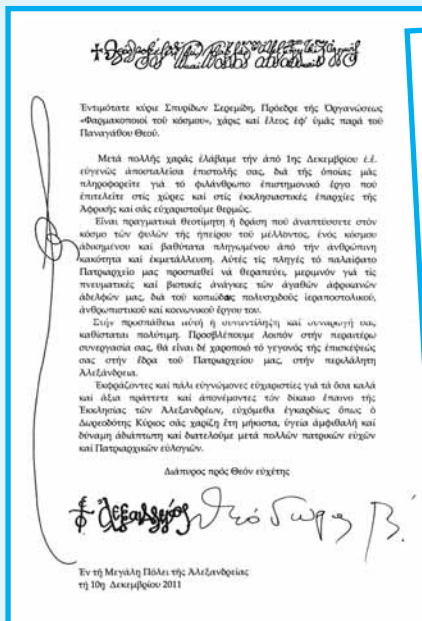 Ἐντιμότατε κύριε Σπυρίδων Σερεμίδη, Πρόεδρε τῆς Ὀργανώσεως
«Φαρμακοποιοί τοῦ κόσμου», χάρις καί ἔλεος ἐφ' ὑμᾶς παρά τοῦ
Παναγάθου Θεοῦ.
Μετά πολλῆς χαρᾶς ἐλάβαμε τήν ἀπό 1ης Δεκεμβρίου ἐ.ἔ.
εὐγενῶς ἀποσταλεῖσα ἐπιστολῆς σας, διά τῆς ὁποίας μᾶς
πληροφορεῖτε γιά τό φιλάνθρωπο ἐπιστημονικό ἔργο πού
ἐπιτελεῖτε στίς χῶρες καί στίς ἐκκλησιαστικές ἐπαρχίες τῆς
Ἀφρικῆς καί σᾶς εὐχαριστοῦμε θερμῶς.
Εἶναι πραγματικά θεοτίμητη ἡ δράση πού ἀναπτύσσετε στόν
κόσμο τῶν φυλῶν τῆς ἠπείρου τοῦ μέλλοντος, ἑνός κόσμου
ἀδικημένου καί βαθύτατα πληγωμένου ἀπό τήν ἀνθρώπινη
κακότητα καί ἐκμετάλλευση. Αὐτές τίς πληγές τό παλαίφατο
Πατριαρχεῖο μας προσπαθεῖ νά θεραπεύει, μεριμνόν γιά τίς
πνευματικές καί βιοτικές ἀνάγκες τῶν ἀγαθῶν ἀφρικανῶν
ἀδελφῶν μας, διά τοῦ κοπιώδους πολυσχιδοῦς ἱεραποστολικοῦ,
ἀνθρωπιστικοῦ καί κοινωνικοῦ ἔργου του.
Στήν προσπάθεια αὐτή ἡ συναντίληψη καί συναρωγή σας
καθίσταται πολύτιμη. Προσβλέπουμε λοιπόν στήν περαιτέρω
συνεργασία σας, θά εἶναι δέ χαροποιό τό γεγονός τῆς ἐπισκέψεώς
σας στήν ἕδρα τοῦ Πατριαρχείου μας, στήν περιλάλητη
Ἀλεξάνδρεια.
Ἐκφράζοντες καί πάλι εὐγνώμονες εὐχαριστίες γιά τά ὅσα καλά
καί ἄξια πράττετε καί ἀπονέμοντες τόν δίκαιο ἔπαινο τῆς
Ἐκκλησίας τῶν Ἀλεξανδρέων, εὐχόμεθα ἐγκαρδίως ὅπως ὁ
Δωρεοδότης Κύριος σᾶς χαρίζη ἔτη μήκιστα, ὑγεία ἀμφιθαλῆ καί
δύναμη ἀδιάπτωτη καί διατελοῦμε μετά πολλῶν πατρικῶν εὐχῶν
καί Πατριαρχικῶν εὐλογιῶν.
Διάπυρος πρός Θεόν εὐχέτης
Θεόδωρος Β΄
Ἐν τῇ Μεγάλη Πόλει τῆς Ἀλεξανδρείας
τῇ 10η Δεκεμβρίου 2011